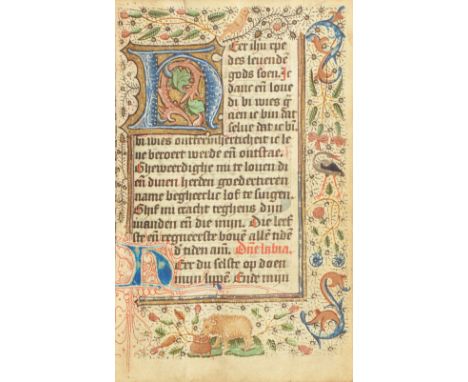 Heer ihu xpe
des levende
gods soen. Ic
danc en love
di bi wies g
aen ic bin dat
selve dat ic bi.
bi wies ontfermherticheit ic le
ve beroert werde en ontstae.
Gheweerdighe mi te loven di
en dinen heyden goedertieren
name begheerlic lof te singen.
Ghif mi cracht teghens dijn
vianden en die mijn. Die leef
ste en regneerste bove alle tide
d tiden am. Dne labia.
Heer du selste op doen
mijn lippe. Ende mijn